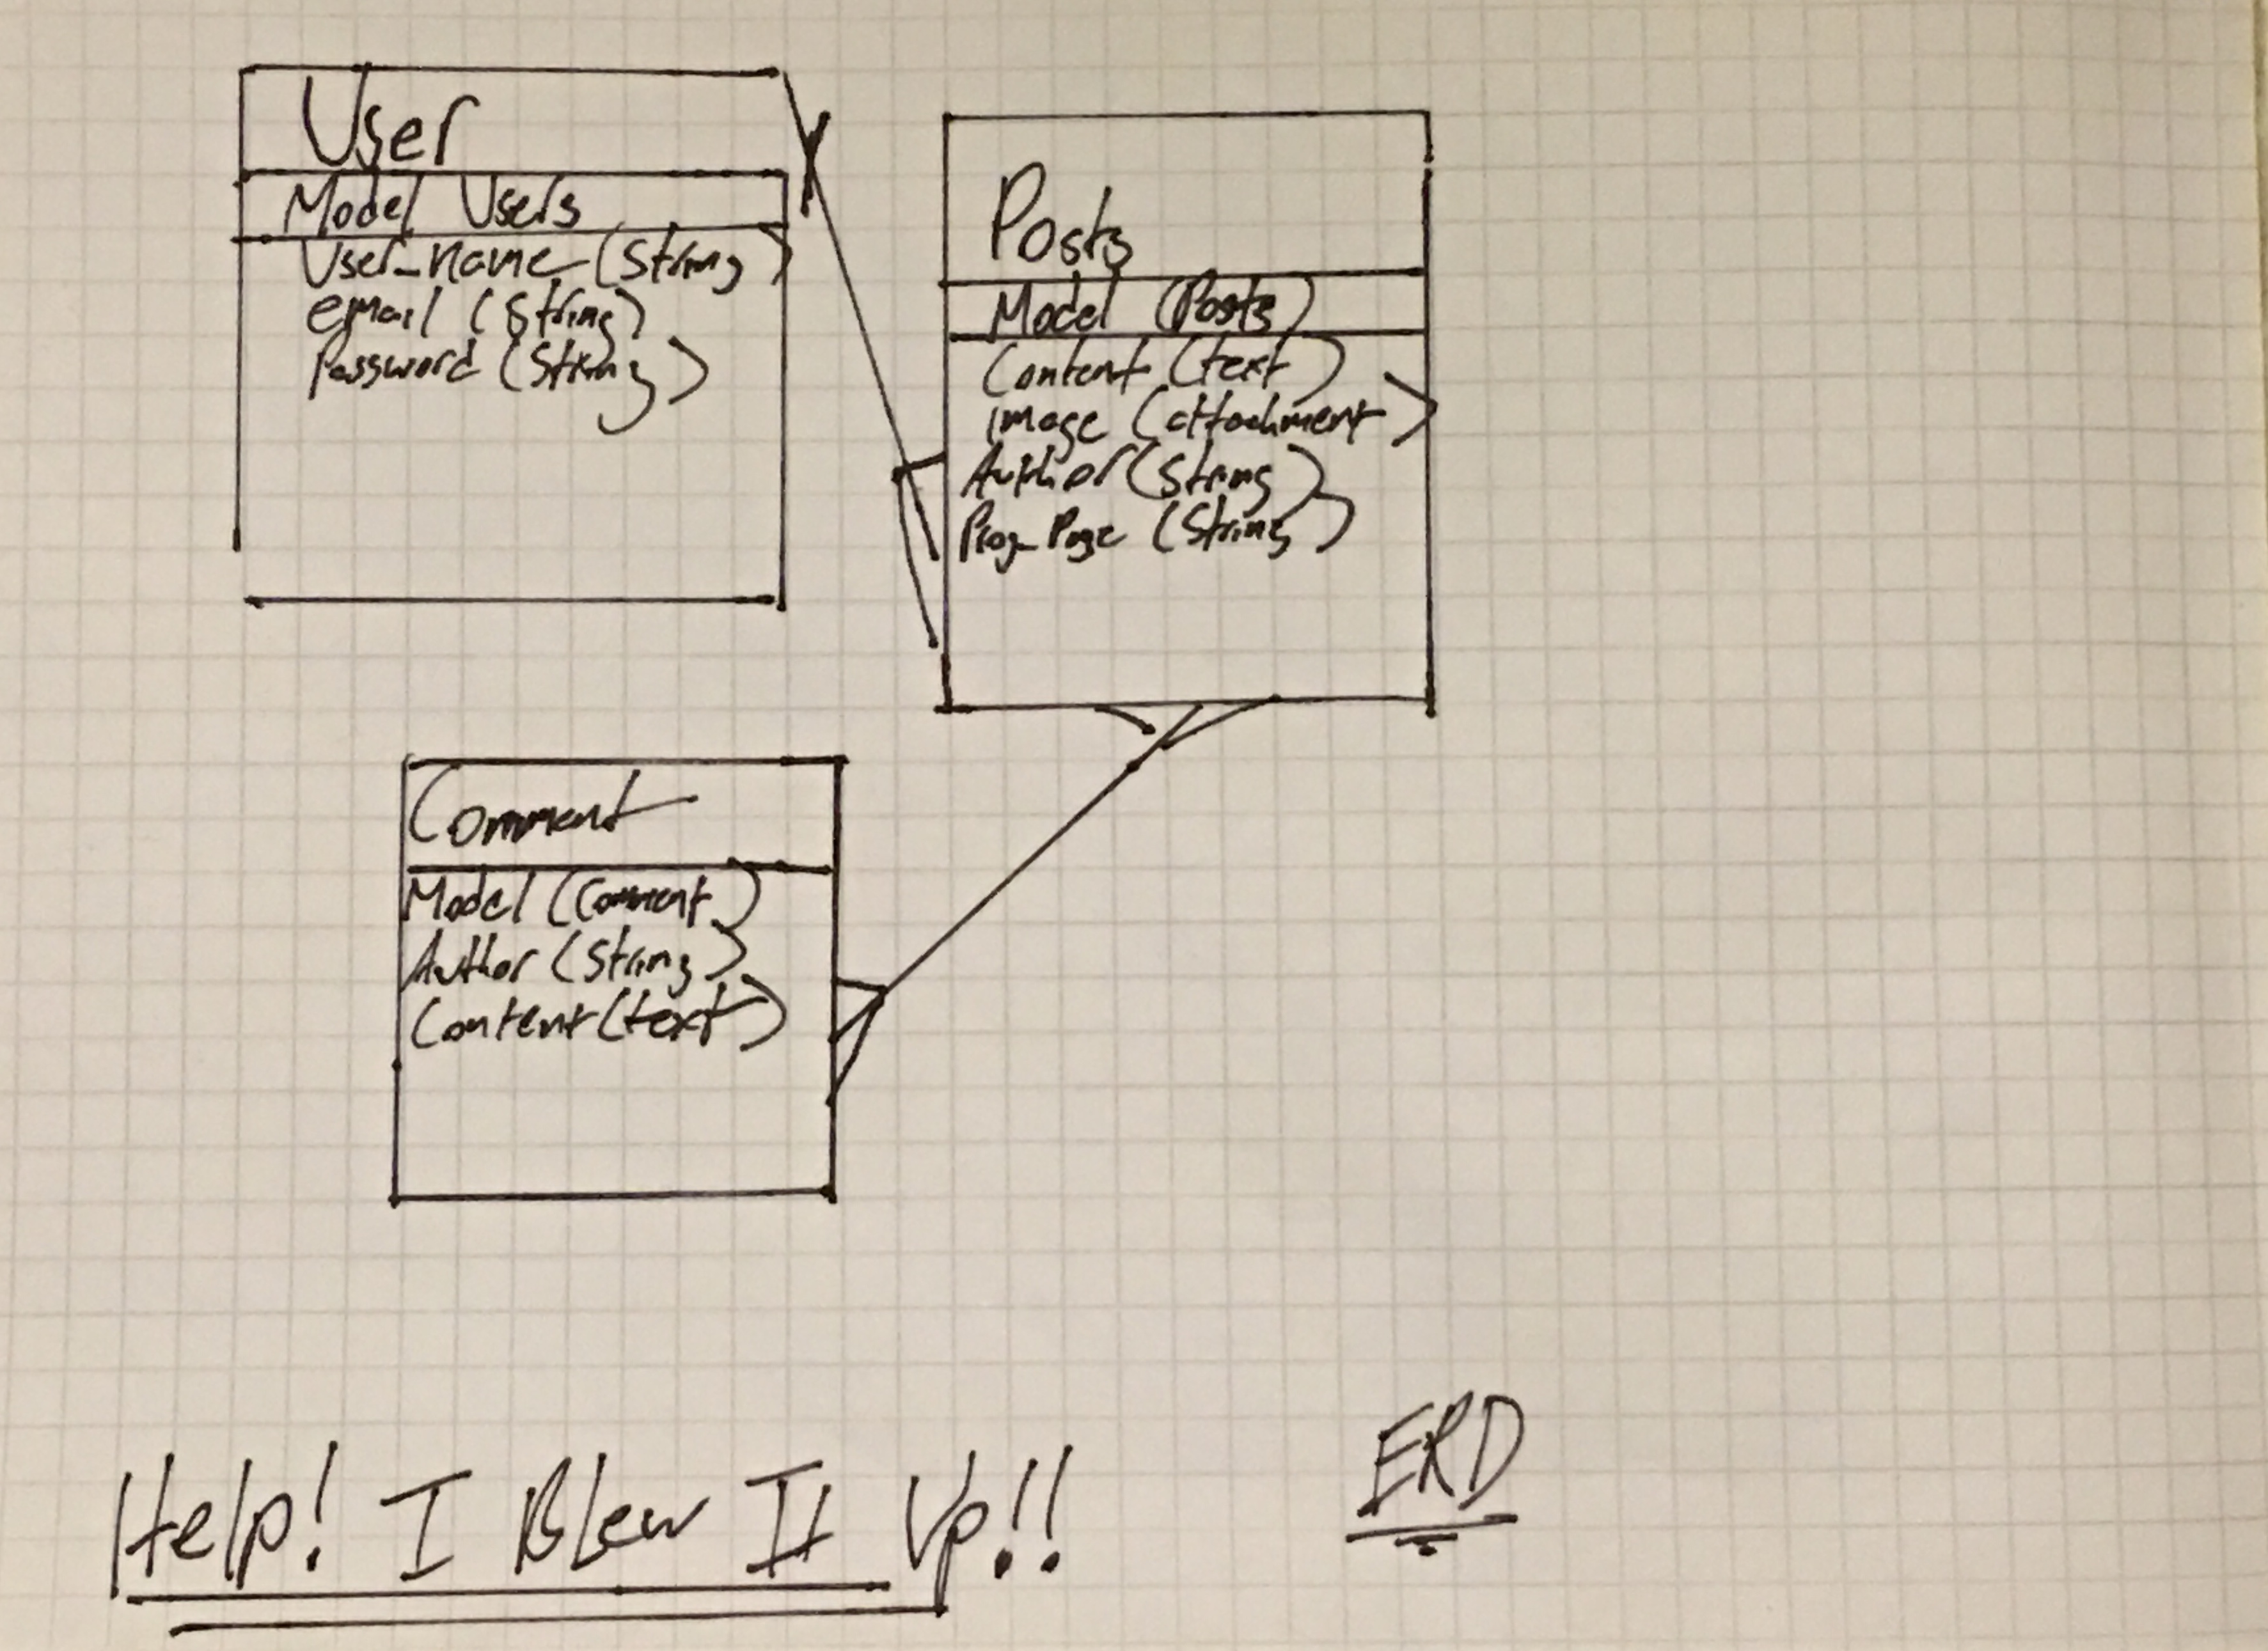 User
Model Users
User_name (String)
email (string)
Password (String)
Posts
Model (Posts)
Content (text)
image (attachment)
Author (string)
Prog_Page (String)
Comment
Model (Comment)
Author (String)
Content (text)
Help! I Blew It Up!!
ERD